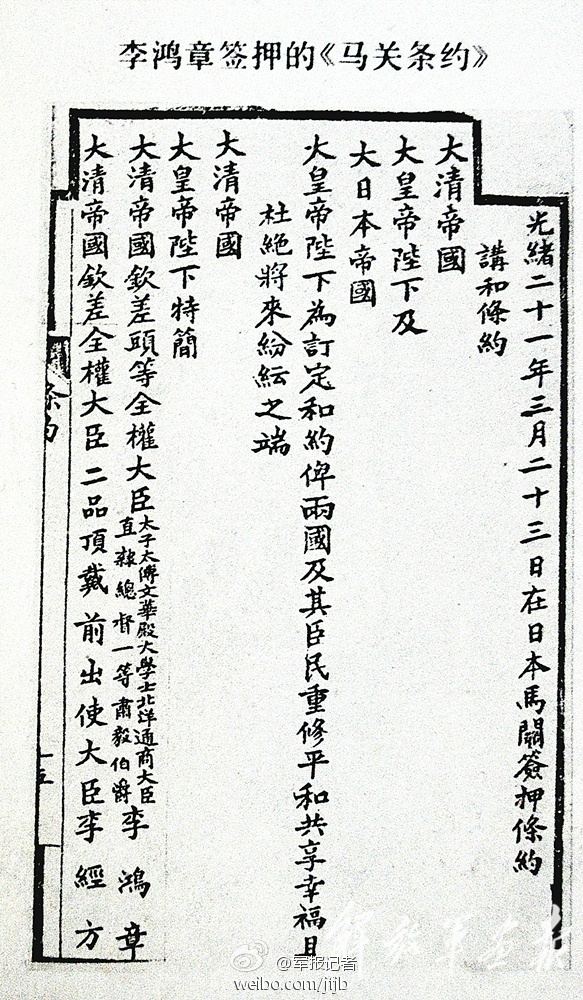 李鸿章签押的《马关条约》
光緒二十一年三月二十三日在日本馬關簽押條約
講和條約
大清帝國
大皇帝陛下及
大日本帝國
大皇帝陛下為訂定和約俾兩國及其臣民重修平和共享幸福且
杜絕將來紛紜之端
大清帝國
大皇帝陛下特簡
大清帝國欽差頭等全權大臣太子太傅文華殿大學士北洋通商大臣直隸總督一等肅毅伯爵李鴻章
大清帝國欽差全權大臣二品頂戴前出使大臣李經方
條約
十五
@军报记者
weibo.com/jfjb